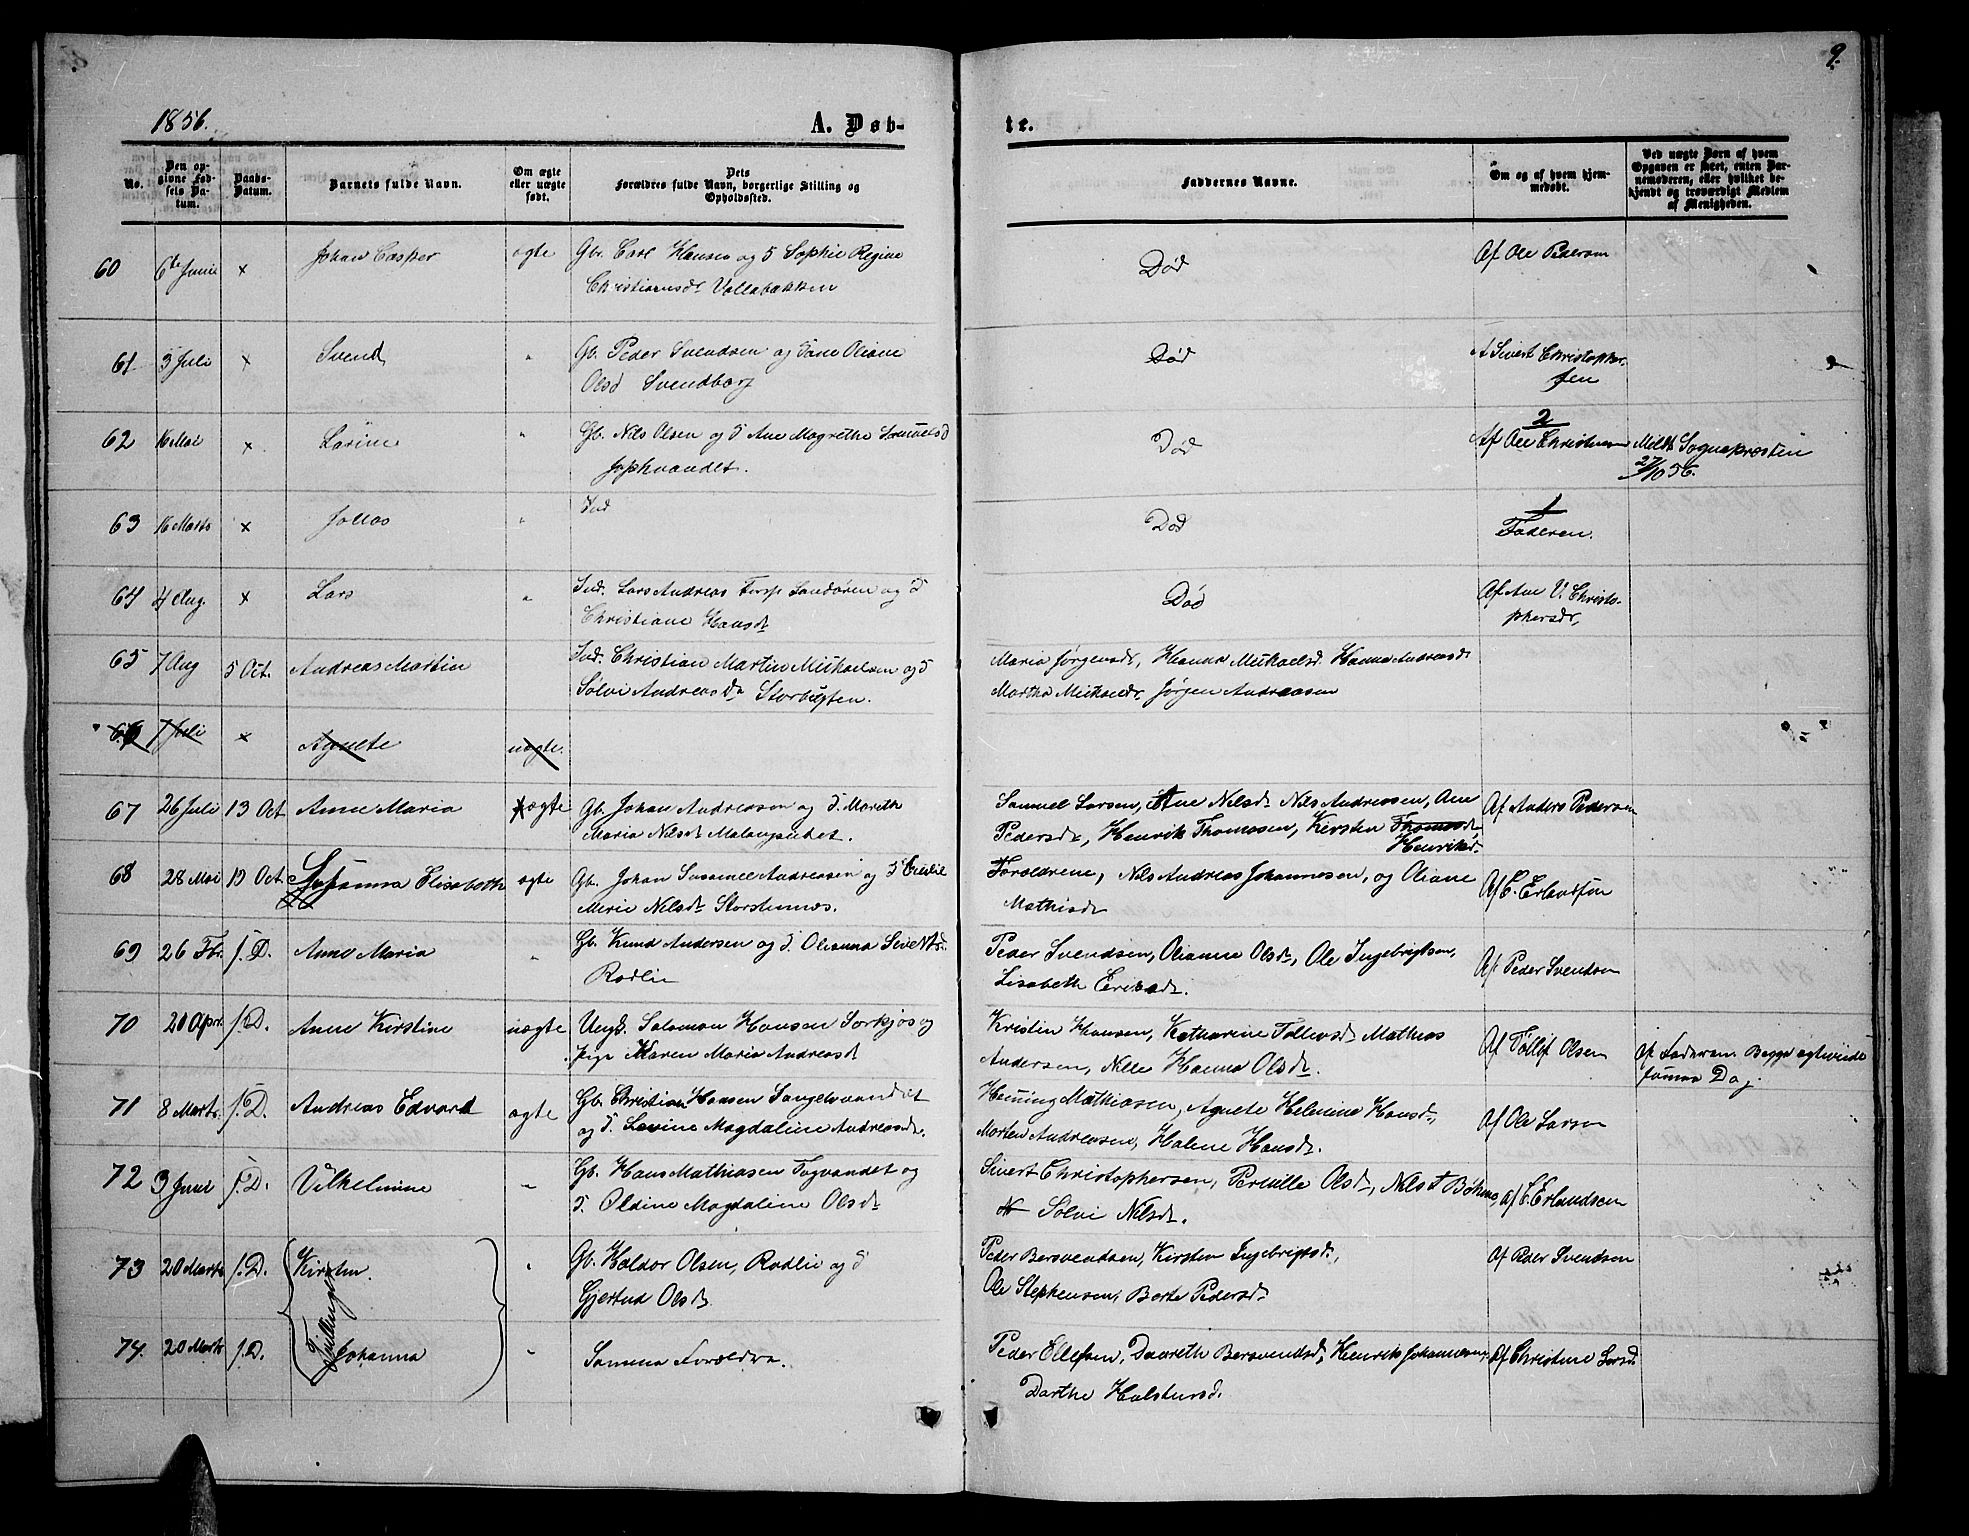 9.
1856.
A. Døb-
te.
No.
Den op-
givne Fød-
sels Da-
tum.
Daabs-
Datum.
Barnets fulde Navn.
Om ægte
eller uægte
født.
Dets
Forældres fulde Navn, borgerlige Stilling og
Opholdssted.
Faddernes Navne.
Om og af hvem hjem-
medøbt.
Ved uægte Børn af hvem
Opgaven er skeet, enten Bar-
nemoderen, eller hvilket be-
kjendt og troværdigt Medlem
af Menigheden.
60 6te Junii x Johan Casper ægte Gb. Carl Hansen og Sophie Regine
Christiansdr Vollabakken
Død
Af Ole Pedersen
61 3 Juli x Svend " Gb. Peder Svendsen og Oliane
Olsd Svendborg
Død
A Sivert Christopher-
sen
62 16 Mai x Lorine " Gb. Nils Olsen og Ane Magrethe Samuelsd
Død
2
Af Ole Christensen
Meldt Sognepresten
27/10 56.
63 16 Marts x "
Ind
Død
1
Faderen.
64 4 Aug. x Lars " Ind. Lars Andreas og
Christiane Hansdr
Død
Af Ane V. Christo-
phersdr,
65 7 Aug 5 Oct. Andreas Martin Ind. Christian Martin Mikaelsen og
Solvi Andreasdr Storbugten.
Maria Jørgensdr, Hanna Mickaelsd. Hanna Andreasdr
Martha Jørgen Andreasen
66 7 Juli x Agnete uægte.
67 26 Juli 13 Oct Anne Maria ægte Gb. Johan Andreasen og Marith
Maria Nilsdr Malangseidet.
Samuel Larsen, Ane Nilsdr Nils Andreasen, Ane
Pedersdr, Henrik Thomasen, Kirsten Thomasdr
Henriksd.
Af Anders Pedersen
68 28 Mai 19 Oct. Johanna Elisabeth ægte Gb. Johan Andreasen og
Marie Nilsdr Storstennæs.
Forældrene, Nils Andreas Johannesen, og Oliane
Mathisdr
Af C. Erlandsen
69 26 Fbr. f. D. Anne Maria " Gb. Knud Andersen og Olianna Sivertsd.
Rodlie
Peder Svendsen, Olianna Olsdr, Ole Ingebrigtsen,
Lisabeth Ericsdr.
Af Peder Svendsen
70 20 Apr. f. D. Anne Kirstine uægte Ungk. Salomon Hansen Sørkjos og
Pige Karen Maria Andreasdr
Kristin Hansen, Katharine Tollevsdr Mathias
Andersen, Nille Hanna Olsdr.
Af Tollif Olsen
Af Faderen. Begge
samme Dag.
71 8 Marts. f. D. Andreas Edvard ægte Gb. Christian Hansen Sangelsvandet
og Lovine Magdaline Andreasdr.
Heming Mathiasen, Agnete Helmine Hansdr,
Morten Andreasen, Halene Hansdr.
Af Ole Larsen
72 3 Juni f. D. Vilhelmine " Gb. Hans Mathiasen Fogvandet og
Oldine Magdaline Olsdr
Sivert Christophersen, Pernille Olsdr, Nils F Bøhm,
Solvi Nilsdr.
af C. Erlandsen
73 20 Marts f. D. Kirsten. " Gb. Haldor Olsen, Rodlie og
Gjertud Olsdr
Tvillinger
Peder Bersvendsen, Kirsten Ingebrigtsdr,
Ole Stephensen, Berte Pedersdr
Af Peder Svendsen
74. 20 Marts f. D. Johanna " Samma Forældra.
Peder Ellefsen, Daareth Bersvendsdr, Henrik Johannesen,
Dorthe Halstensd.
Af Christine Larsd.